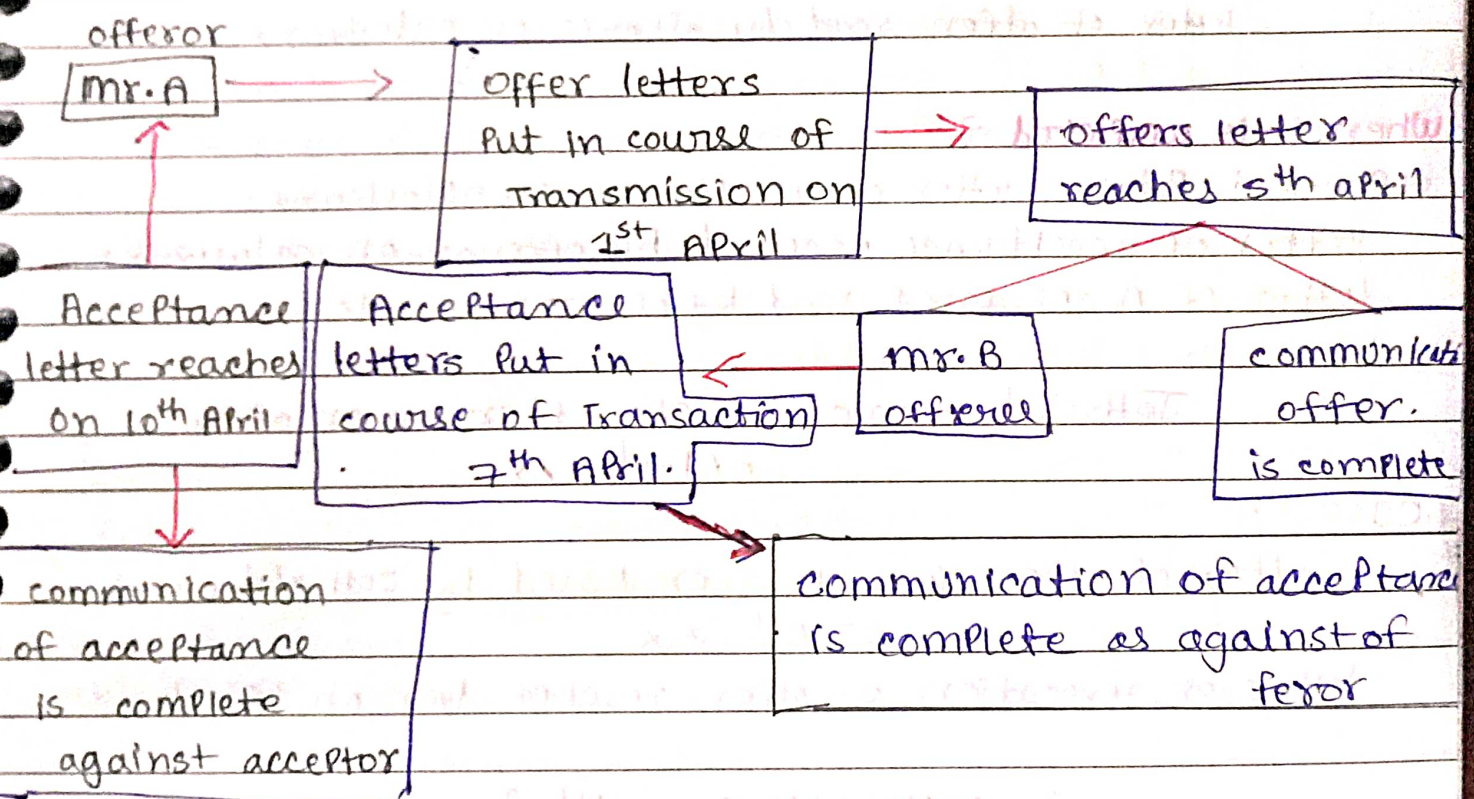 offeror
Mr. A
Offer letters
Put in course of
Transmission on
1st April
offers letter
reaches 5th april
Acceptance
letter reaches
on 10th April
Acceptance
letters Put in
course of Transaction
7th April.
Mr. B
offeree
communicati
offer.
is complete
communication
of acceptance
is complete
against acceptor
communication of acceptance
is complete as against of
feror